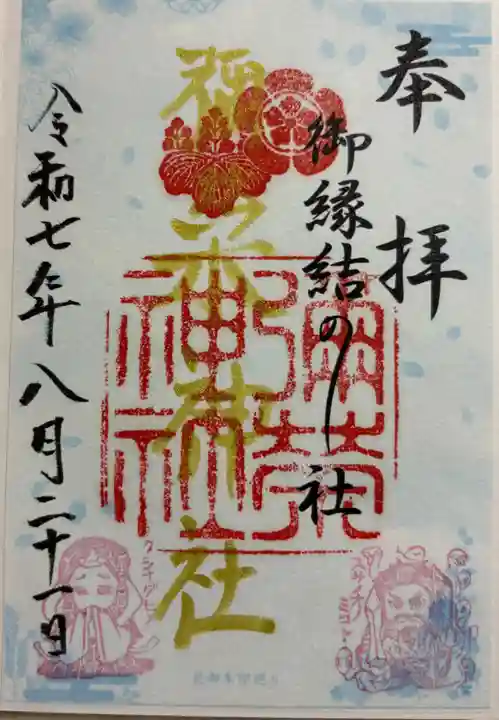 奉拝
御縁結の社
彌榮神社
令和七年八月二十一日
クシナダヒメ
スサノオノミコト